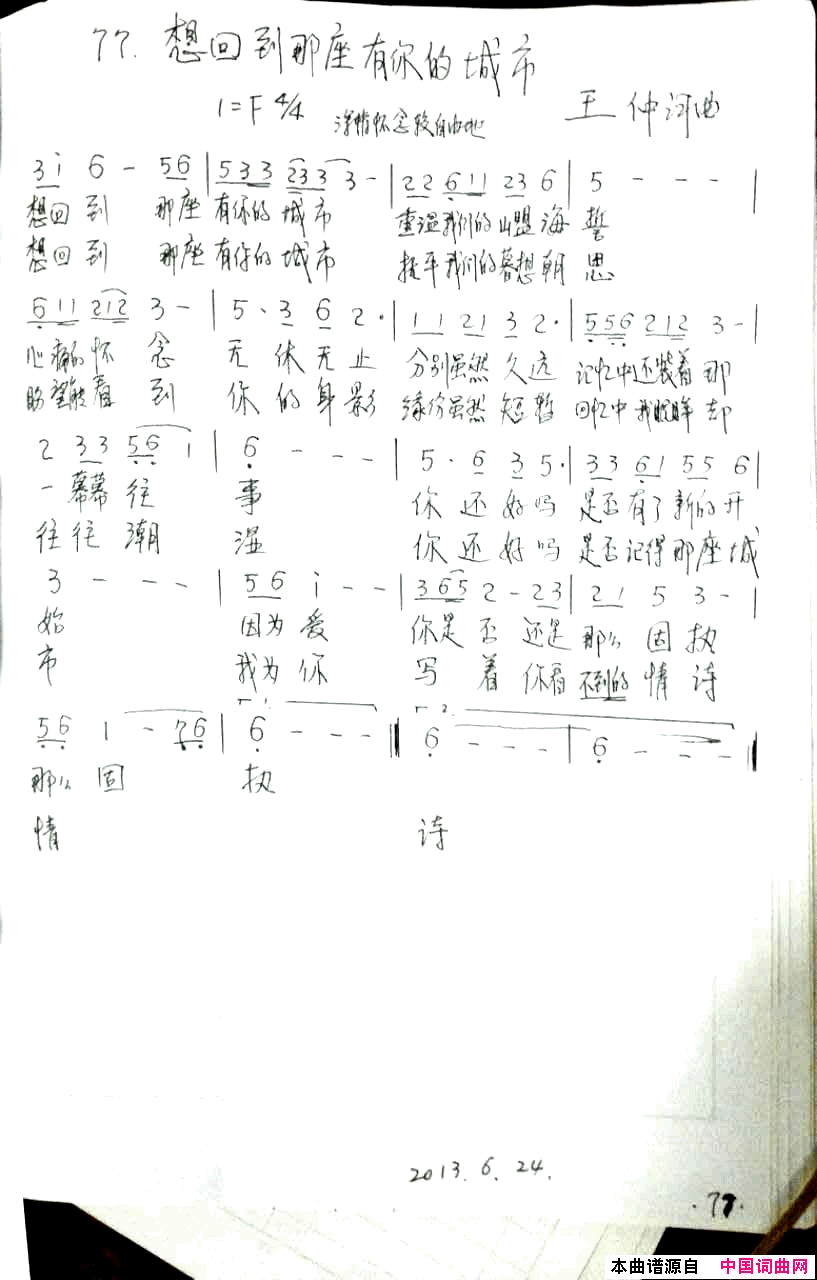 77. 想回到那座有你的城市
1=F 4/4 深情怀念较自由地 王仲河曲
3 i 6 - 56 | 533 233 3 - | 22 611 23 6 | 5 - - - |
想回到 那座有你的城市 重温我们的山盟海誓
想回到 那座有你的城市 抚平我们的暮想朝思
611 212 3 - | 5 · 3 6 2 · | 11 21 3 2 · | 556 212 3 - |
心痛的怀念 无休无止 分别虽然久远 记忆中还装着那
盼望能看到 你的身影 缘份虽然短暂 回忆中我眼眸却
2 33 56 1 | 6 - - - | 5 · 6 3 5 · | 33 61 55 6 |
一幕幕往事 你还好吗 是否有了新的开
往往潮湿 你还好吗 是否记得那座城
3 - - - | 56 i - - | 365 2 - 23 | 21 5 3 - |
始 因为爱 你是否还是那么固执
市 我为你 写着你看不到的情诗
56 1 - 76 | 6 - - - || 6 - - - | 6 - - - ||
那么固 执
情 诗
2013. 6. 24.
·77·
本曲谱源自 中国词曲网